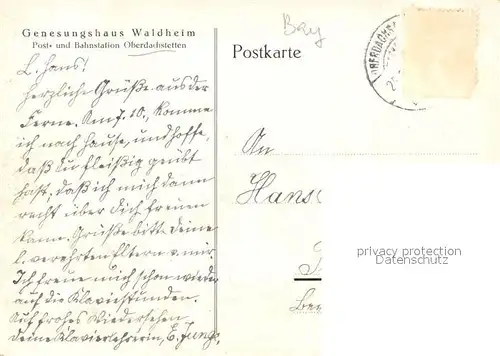 Genesungshaus Waldheim
Post- und Bahnstation Oberdachstetten
Bay
Postkarte
L. Hans!
Herzliche Grüße aus der
Ferne. Am 7.10. komme
ich nach Hause, und hoffe,
daß du fleißig geübt
hast, daß ich mich dann
recht über dich freuen
kann. Grüße bitte deine
l. verehrten Eltern v. mir.
Ich freue mich schon wieder
auf die Klavierstunden.
Auf frohes Wiedersehen
deine Klavierlehrerin, E. Junge
An
Hans
privacy protection
Datenschutz